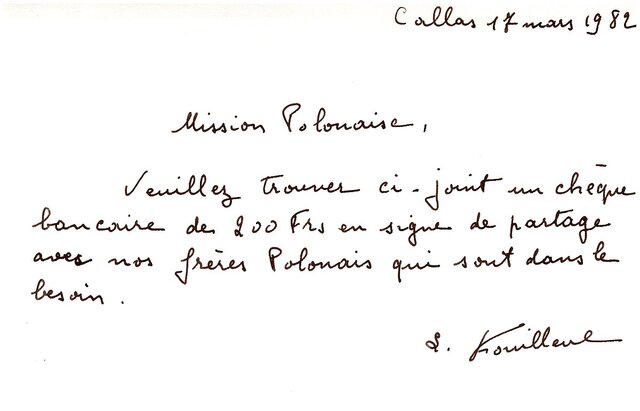 Callas 17 mars 1982
Mission Polonaise,
Veuillez trouver ci-joint un chèque
bancaire de 200 Frs en signe de partage
avec nos frères Polonais qui sont dans le
besoin.